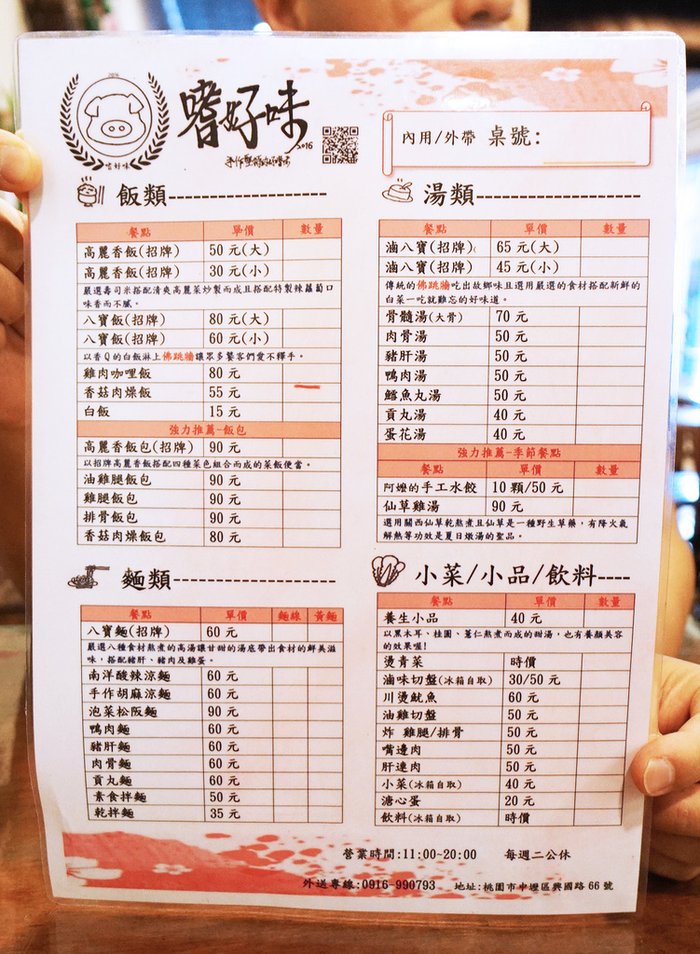 嗜好味
2016
嗜好味
內用/外帶 桌號:
飯類
餐點 單價 數量
高麗香飯(招牌) 50 元(大)
高麗香飯(招牌) 30 元(小)
嚴選壽司米搭配清爽高麗菜炒製而成且搭配特製辣蘿蔔口
味香而不膩。
八寶飯(招牌) 80 元(大)
八寶飯(招牌) 60 元(小)
以香Q的白飯淋上佛跳牆讓眾多饕客們愛不釋手。
雞肉咖哩飯 80 元
香菇肉燥飯 55 元
白飯 15 元
強力推薦-飯包
高麗香飯包(招牌) 90 元
以招牌高麗香飯搭配四種菜色組合而成的菜飯便當。
油雞腿飯包 90 元
雞腿飯包 90 元
排骨飯包 90 元
香菇肉燥飯包 80 元
麵類
餐點 單價 麵線 黃麵
八寶麵(招牌) 60 元
嚴選八種食材熬煮的高湯讓甘甜的湯底帶出食材的鮮美滋
味，搭配豬肝、豬肉及雞蛋。
南洋酸辣涼麵 60 元
手作胡麻涼麵 60 元
泡菜松阪麵 90 元
鴨肉麵 60 元
豬肝麵 60 元
肉骨麵 60 元
貢丸麵 60 元
素食拌麵 50 元
乾拌麵 35 元
湯類
餐點 單價 數量
滷八寶(招牌) 65 元(大)
滷八寶(招牌) 45 元(小)
傳統的佛跳牆吃出故鄉味且選用嚴選的食材搭配新鮮的
白菜一吃就難忘的好味道。
骨髓湯(大骨) 70 元
肉骨湯 50 元
豬肝湯 50 元
鴨肉湯 50 元
鱈魚丸湯 50 元
貢丸湯 40 元
蛋花湯 40 元
強力推薦-季節餐點
餐點 單價 數量
阿嬤的手工水餃 10 顆/50 元
仙草雞湯 90 元
選用關西仙草乾熬煮且仙草是一種野生草藥，有降火氣
解熱等功效是夏日燉湯的聖品。
小菜/小品/飲料
餐點 單價 數量
養生小品 40 元
以黑木耳、桂圓、薏仁熬煮而成的甜湯，也有養顏美容
的效果喔!
燙青菜 時價
滷味切盤(冰箱自取) 30/50 元
川燙魷魚 60 元
油雞切盤 50 元
炸 雞腿/排骨 50 元
嘴邊肉 50 元
肝連肉 50 元
小菜(冰箱自取) 40 元
溏心蛋 20 元
飲料(冰箱自取) 時價
營業時間:11:00~20:00 每週二公休
外送專線:0916-990793 地址:桃園市中壢區興國路 66 號